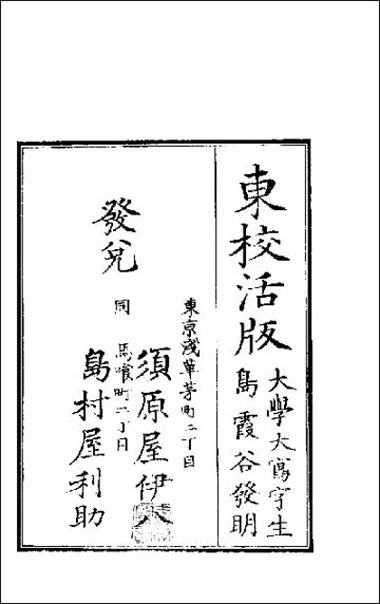 東校活版
大學大寫字生
島霞谷發明
東京淺草茅町二丁目
須原屋伊八
同 馬喰町二丁目
島村屋利助
發兌